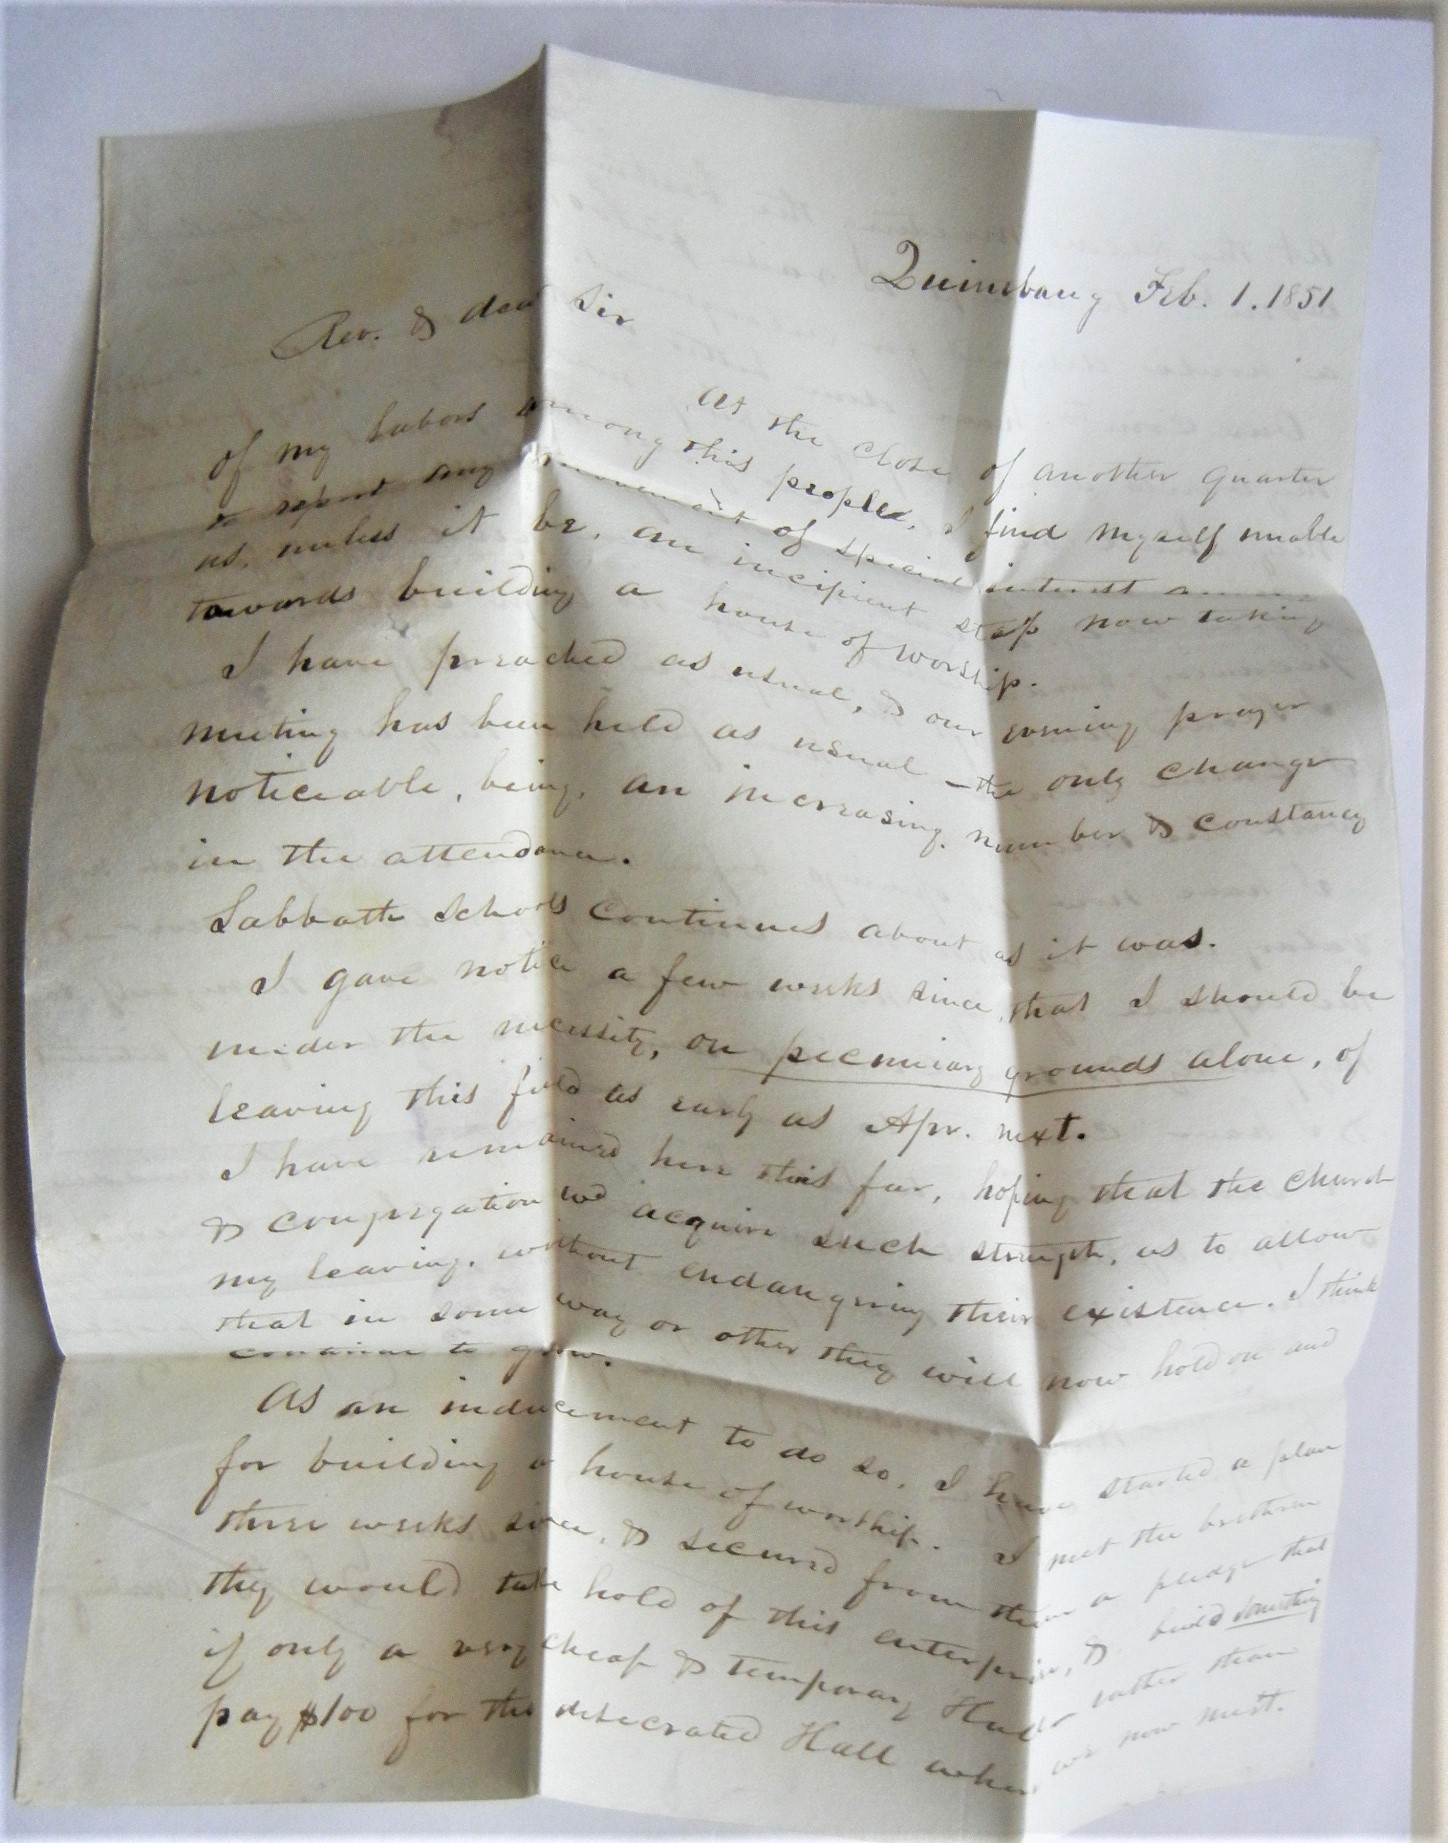 Quinebaug Feb. 1. 1851
Rev. & dear Sir
At the close of another quarter
of my labors among this people, I find myself unable
to report any movement of special interest among
us, unless it be, an incipient step now taking
towards building a house of worship.
I have preached as usual, & our evening prayer
meeting has been held as usual – the only change
noticeable, being, an increasing number & constancy
in the attendance.
Sabbath School continues about as it was.
I gave notice a few weeks since, that I should be
under the necessity, on pecuniary grounds alone, of
leaving this field as early as Apr. next.
I have remained here thus far, hoping that the church
& congregation wd acquire such strength, as to allow
my leaving, without endangering their existence. I think
that in some way or other they will now hold on and
continue to grow.
As an inducement to do so, I have started a plan
for building a house of worship. I met the brethren
three weeks since, & secured from them a pledge that
they would take hold of this enterprise, & build something
if only a very cheap & temporary rather than
pay $100 for the desecrated Hall where we now meet.